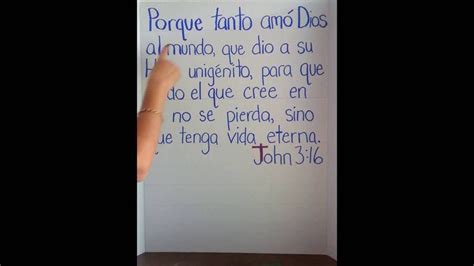 Porque tanto amó Dios
al mundo, que dio a su
unigénito, para que
el que cree en
no se pierda, sino
tenga vida eterna.
John 3:16